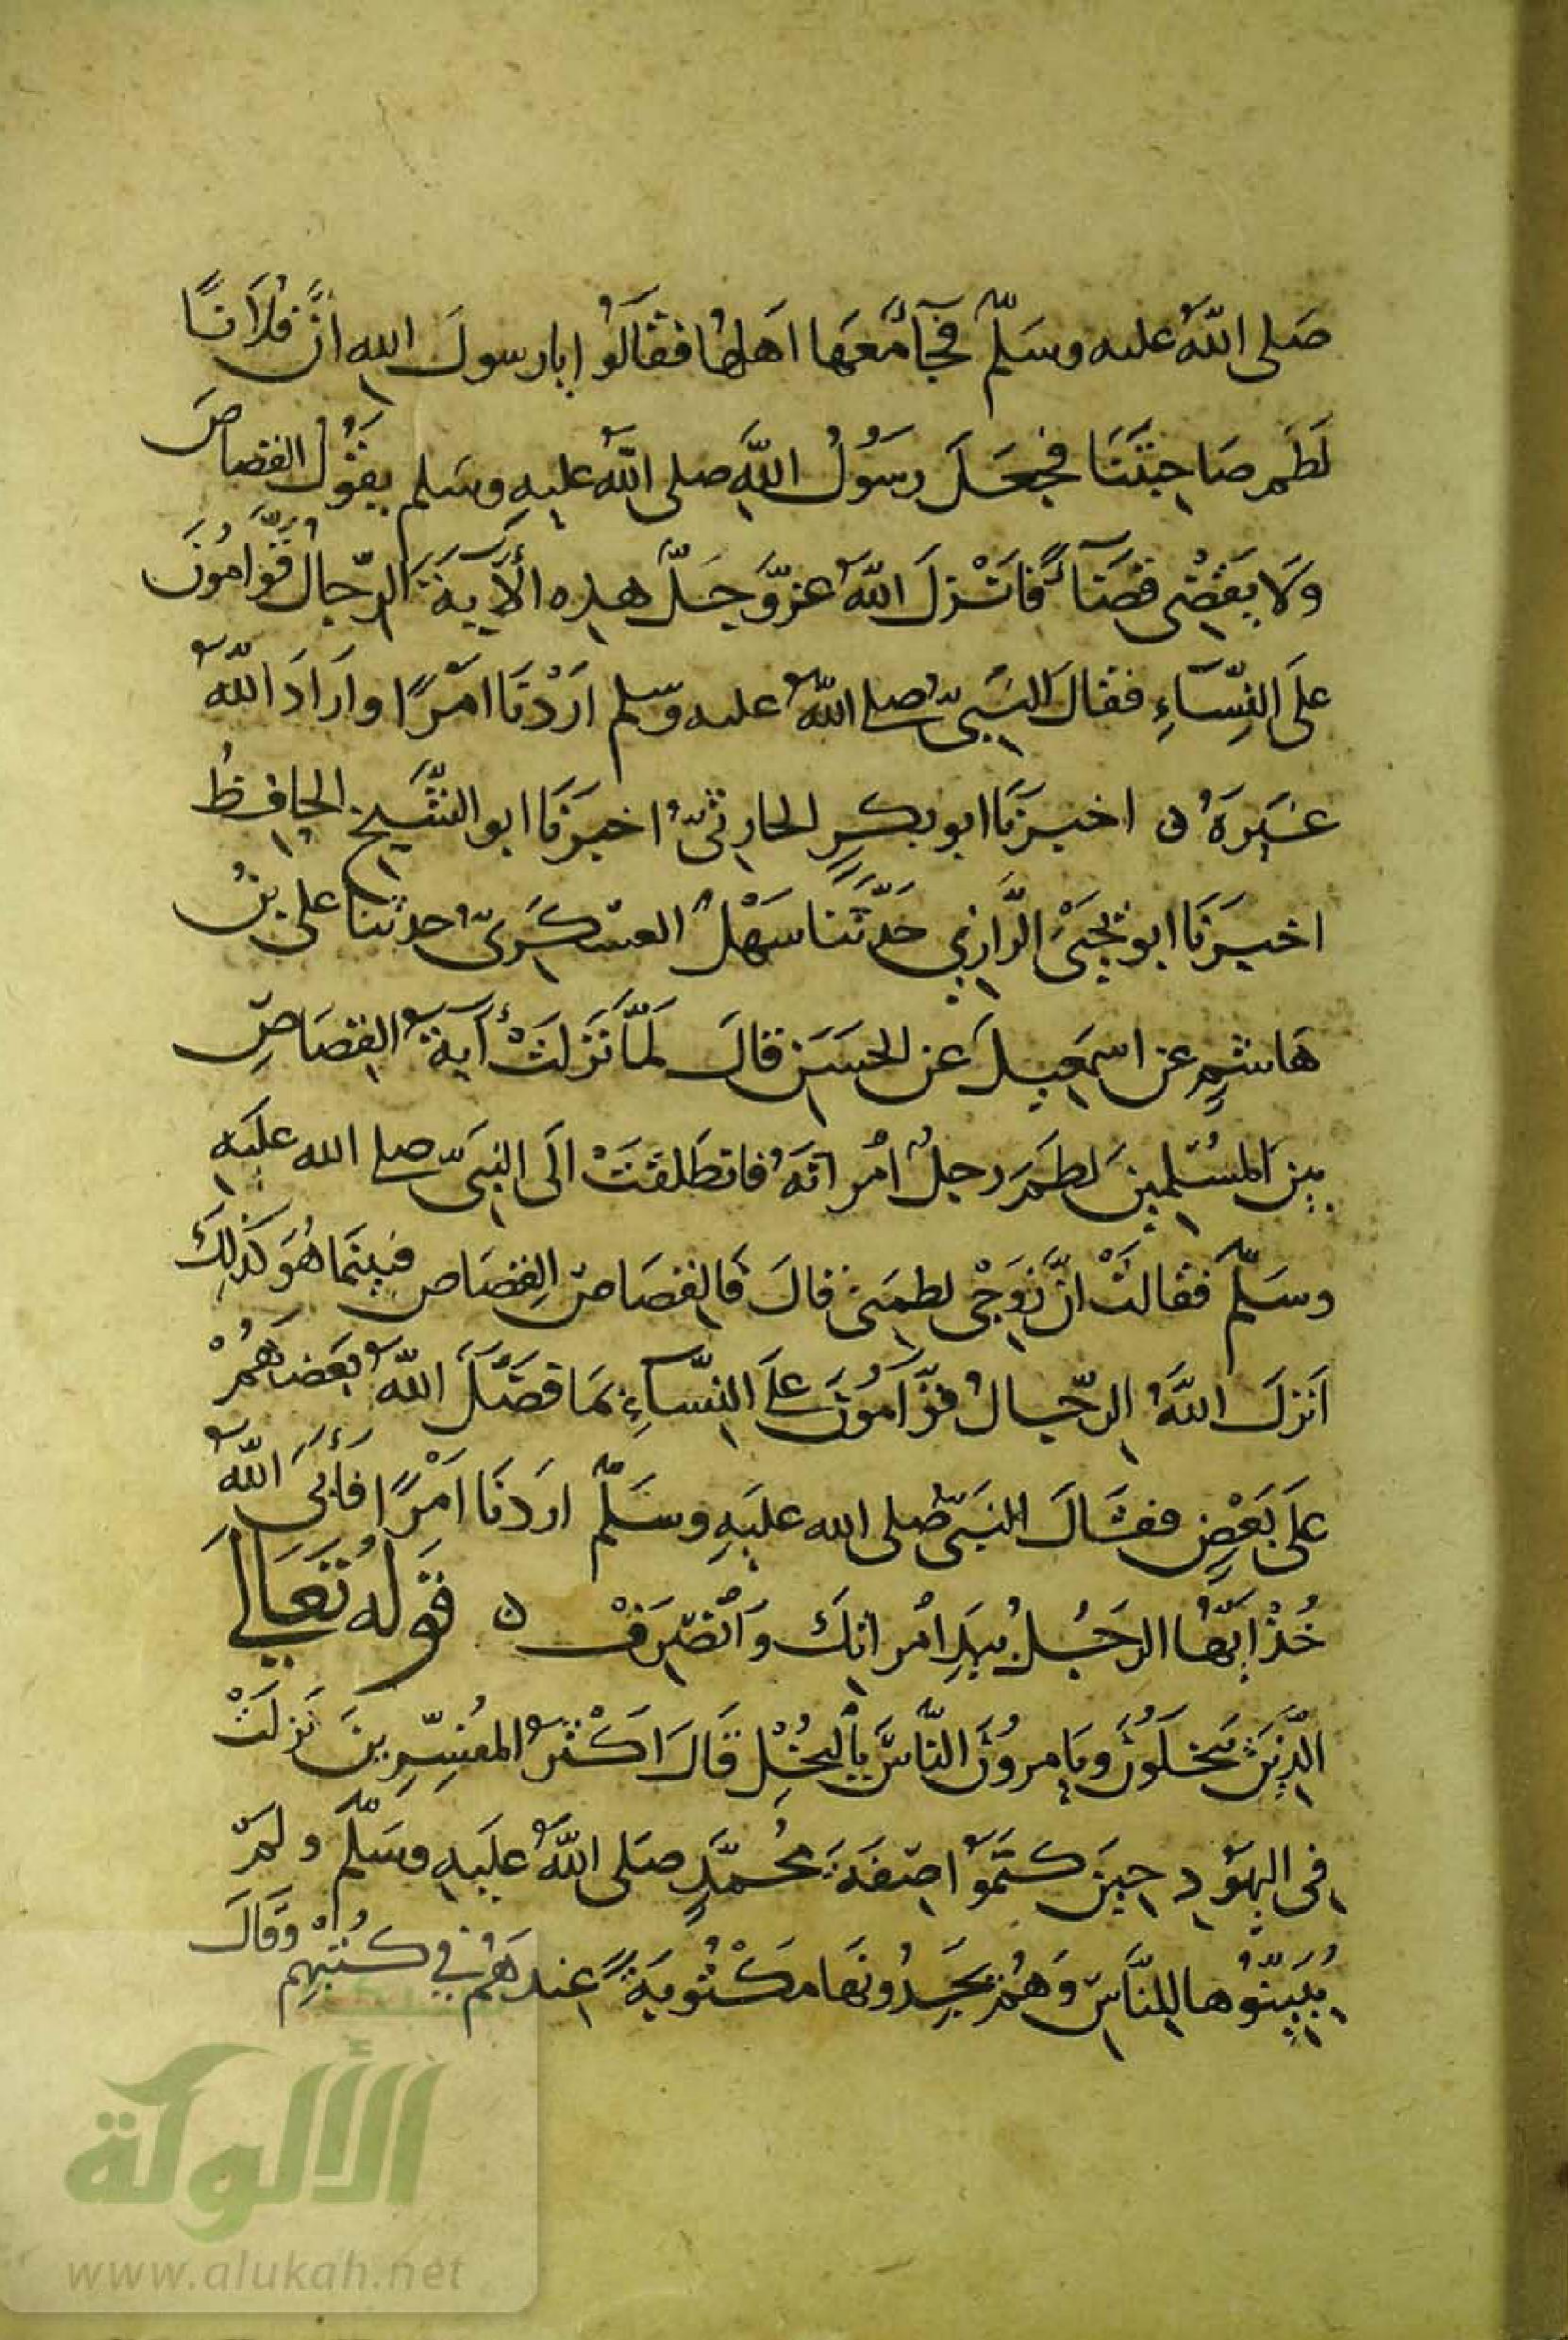 صَلى اللَّهُ عليه وسَلَّمَ فجَآءَ مَعَهَا اَهلُهَا فقَالَوُا يا رسولَ اللهِ انَّ فُلَانًا
لَطَمَ صَاحِبَتَنَا فجَعَلَ رسَوُلُ اللَّهِ صلى اللَّهُ عليهِ وسَلم يقَوُلُ القصَاصَ
وَلَا يَقضِى قضَآءً فَاَنْزلَ اللَّهُ عزَّوَجَلَّ هذِه الأَيةَ الرِّجالُ قَوَّامُونَ
علَى النِّسَآءِ فقالَ النبَىُّ صلى اللَّهُ عليه وسَلم ارَدْنَا امَرًا وارَادَ اللَّهُ
غيَرَهُ ه اخبرَنَا ابو بكرٍ الحارِثىُّ اخبرَنَا ابو الشَّيخ الحافِظُ
اخبرَنَا ابو يحيَىَ الرَّازِي حَدَّثَنَا سَهْلٌ العسْكَرىُّ حدثنا على بنُ
هَاشمٍ عن اسمعيلَ عن الحسَنِ قالَ لمَّا نَزلَتْ آيةُ القصَاصِ
بينَ المُسْلمينَ لطَمَ رجلٌ امُراتَهُ فانطَلقَتْ الَى النبىِّ صلى الله عليَهِ
وسَلَّمَ فقالتْ انَّ زَوجْى لطمَنى فالَ فَالقصَاصَ القِصَاص فبينَمَا هُوَ كَذلِكَ
اَنزلَ اللَّهُ الرِّجَالُ قوَّامَوُنَ علَى النِّسَآءِ بمَا فضَّلَ اللَّهُ بَعضَهُمْ
علَى بَعَضٍ فقَالَ النبَىُّ صَلى الله عليَهِ وسَلَّمَ ارَدنَا امَرًا فَأَبَى اللَّهُ
خُذْ ايَّهَا الرجُلُ بيَدِ امْراتِكَ وَانْصَرِفْ ه قَولُهُ تَعَالَى
الَّذِينَ يَبخَلَوُنَ ويَامروُنَ النَّاسَ بِالبُخْلِ قَالَ اَكْثرُ المُفسِّرِينَ نَزلَتْ
فِى اليهَوُدِ حينَ كتَمَوُا صفَةَ محُمَّدٍ صَلى اللَّهُ عليَهِ وسَلَّمَ ولمَ
يُبيِّنَوُها للنَّاسِ وَهُمْ يَجِدُونهَا مَكْتُوبَةً عِندَهُمْ فِي كتُبُهِمْ وَقَالَ
الألوكة
www.alukah.net